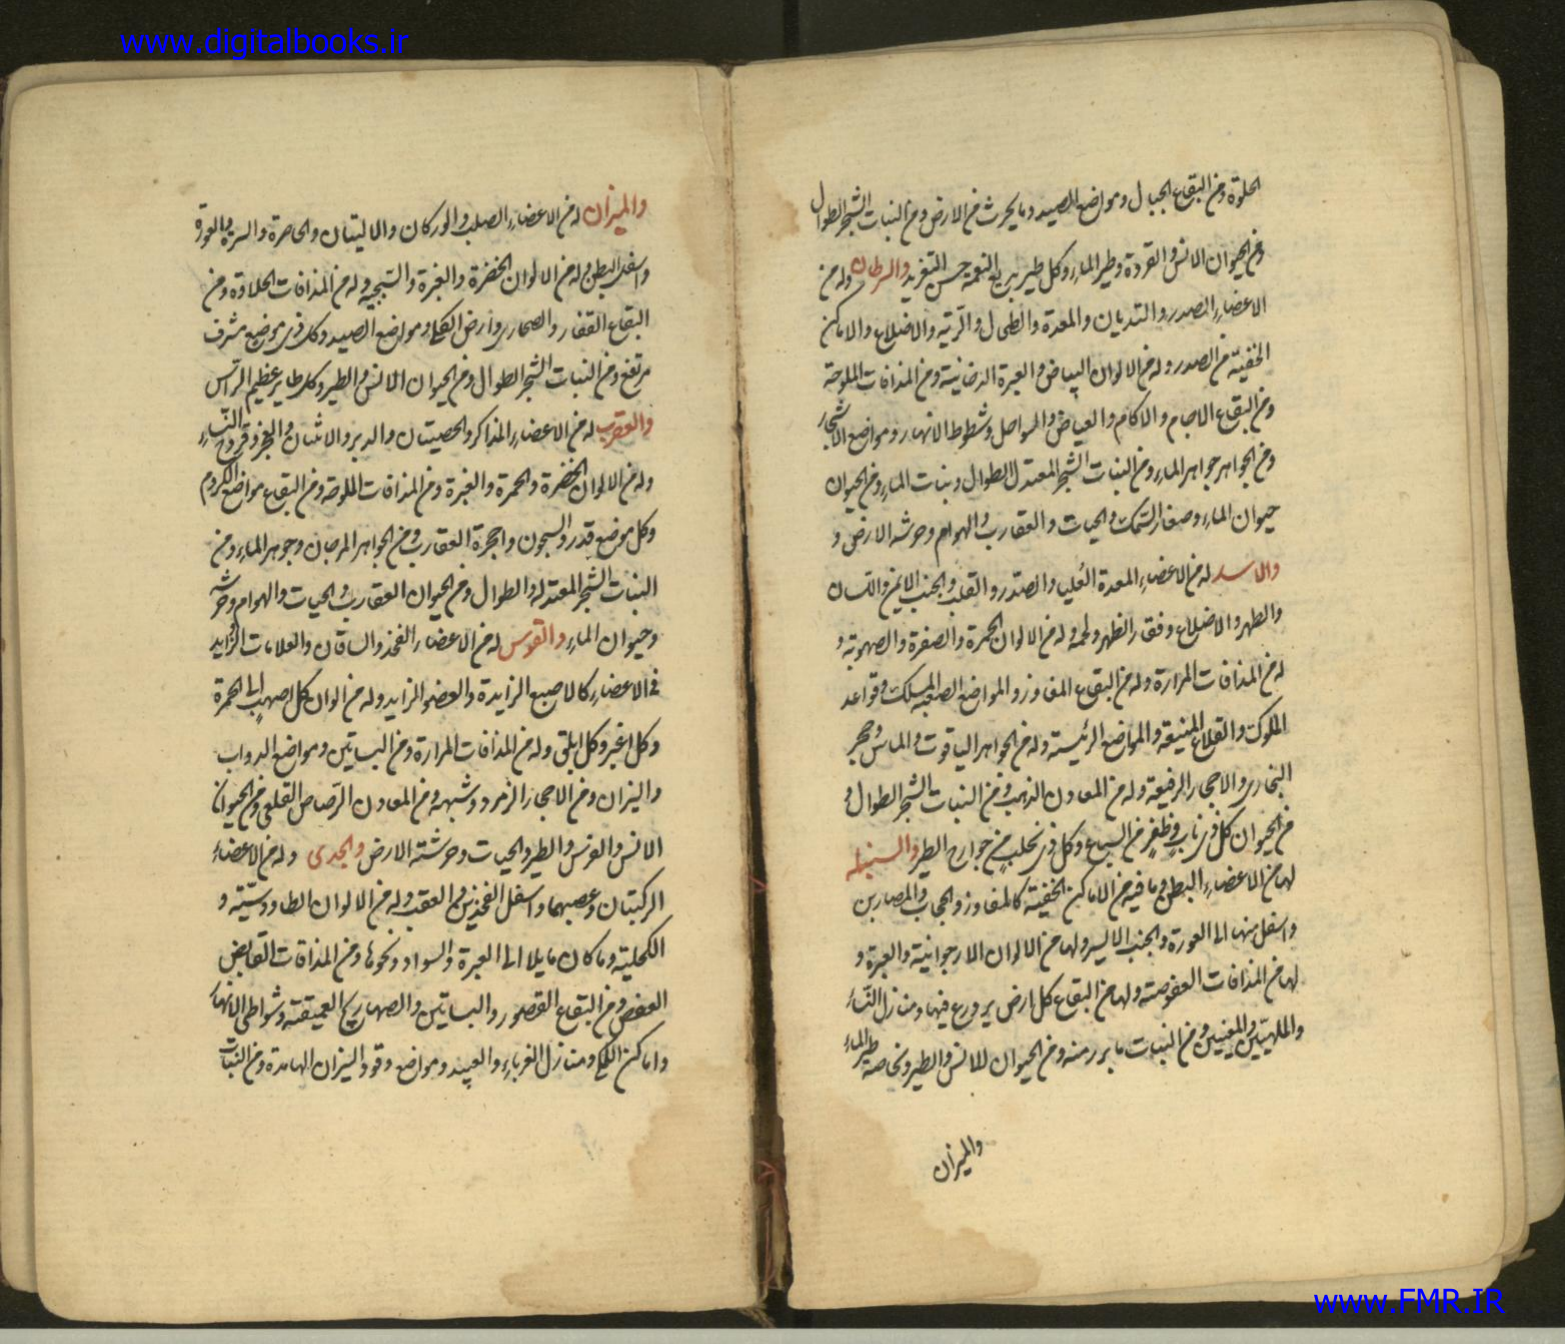 www.digitalbooks.ir
الحلوة ومن البقاع الجبال ومواضع الصيد وما يحرث من الارض ومن النبات الشجر الطوال
ومن الحيوان الانس والقردة وطير الماء وكل طير النغمة حسن التغريد والسرطان وله من
الاعضاء الصدر والثديان والمعدة والطحال والرئة والاضلاع والاماكن
الخفية من الصدر وله من الالوان البياض والغبرة الدخانية ومن المذاقات الملوحة
ومن البقاع الاجام والاكام والغياض والسواحل وشطوط الانهار ومواضع الاشجار
ومن الجواهر جواهر الماء ومن النبات الشجر المعتدل الطوال ونبات الماء ومن الحيوان
حيوان الماء وصغار السمك والحيات والعقارب والهوام وحرشه الارض و
والاسد له من الاعضاء المعدة العليا والصدر والقلب والجنب الايمن واللسان
والظهر والاضلاع وفقار الظهر ولحمه وله من الالوان الحمرة والصفرة والصهوبة و
له من المذاقات المرارة وله من البقاع المفاوز والمواضع الصعبة المسلك وقواعد
الملوك والقلاع المنيعة والمواضع الرئيسة وله من الجواهر الياقوت والماس وحجر
البخارى والاحجار الرفيعة وله من المعادن الذهب ومن النبات الشجر الطوال و
من الحيوان كل ذى ناب وظفر من السباع وكل ذى مخلب من جوارح الطير والسنبله
لها من الاعضاء البطن وما فيه من الاماكن الخفية كالمغاوز والحجاب والمصارين
واسفل منها الى العورة والجنب الايسر ولها من الالوان الارجوانية والغبرة و
لها من المذاقات العفوصة ولها من البقاع كل ارض يزرع فيها ومنازل النساء
والملهيين والمغنيين ومن النبات ما بزر منه ومن الحيوان الانس والطير وخاصة طير الماء
والميزان
والميزان له من الاعضاء الصلب والوركان والاليتان والخاصرة والسرة والعورة
واسفل البطن وله من الالوان الخضرة والغبرة وله من المذاقات الحلاوة ومن
البقاع القفار والصحارى وارض ومواضع الصيد وكل ذى موضع مشرف
مرتفع ومن النبات الشجر الطوال ومن الحيوان الانس والطير وكل طاير عظيم الراس
والعقرب له من الاعضاء المذاكر والخصيتان والدبر والانثيان والعجز وفروج النساء
وله من الالوان الخضرة والحمرة والغبرة ومن المذاقات الملوحة ومن البقاع مواضع الكروم
وكل موضع قذر والسجون واجحرة العقارب ومن الجواهر المرجان وجوهر الماء ومن
النبات الشجر المعتدلة والطوال ومن الحيوان العقارب والحيات والهوام وحرشه
وحيوان الماء والقوس له من الاعضاء الفخذ والساقان والعلامات الزايد
فى الاعضاء كالاصبع الزايدة والعضو الزايد وله من الوان كل اصهب الى الحمرة
وكل اغبر وكل ابلق وله من المذاقات المرارة ومن البساتين ومواضع الدواب
والنيران ومن الاحجار الزمرد وشبهه ومن المعادن الرصاص القلعى ومن الحيوان
الانس والفرس والطير والحيات وحرشة الارض والجدى وله من الاعضاء
الركبتان وعصبهما واسفل الفخذين ثم العقب وله من الالوان الطاووسية و
الكحلية وما كان مايلا الى الغبرة والسواد ونحوها ومن المذاقات القابض
العفص ومن البقاع القصور والبساتين والصهاريج العميقة وشواطى الانهار
واماكن ومنازل الغرباء والعبيد ومواضع وقود النيران الهامدة ومن النبات
www.FMR.IR